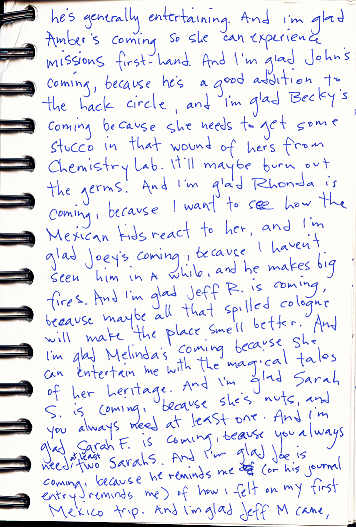 he's generally entertaining. And I'm glad
Amber's coming so she can experience
missions first-hand. And I'm glad John's
coming, because he's a good addition to
the hack circle, and I'm glad Becky's
coming because she needs to get some
stucco in that wound of hers from
Chemistry Lab. It'll maybe burn out
the germs. And I'm glad Rhonda is
coming, because I want to see how the
Mexican kids react to her, and I'm
glad Joey's coming, because I haven't
seen him in a while, and he makes big
fires. And I'm glad Jeff R. is coming,
because maybe all that spilled cologne
will make the place smell better. And
I'm glad Melinda's coming because she
can entertain me with the magical tales
of her heritage. And I'm glad Sarah
S. is coming, because she's nuts, and
you always need at least one. And I'm
glad Sarah F. is coming, because you always
need at least two Sarahs. And I'm glad Joe is
coming, because he reminds me (or his journal
entry reminds me) of how I felt on my first
Mexico trip. And I'm glad Jeff M came,